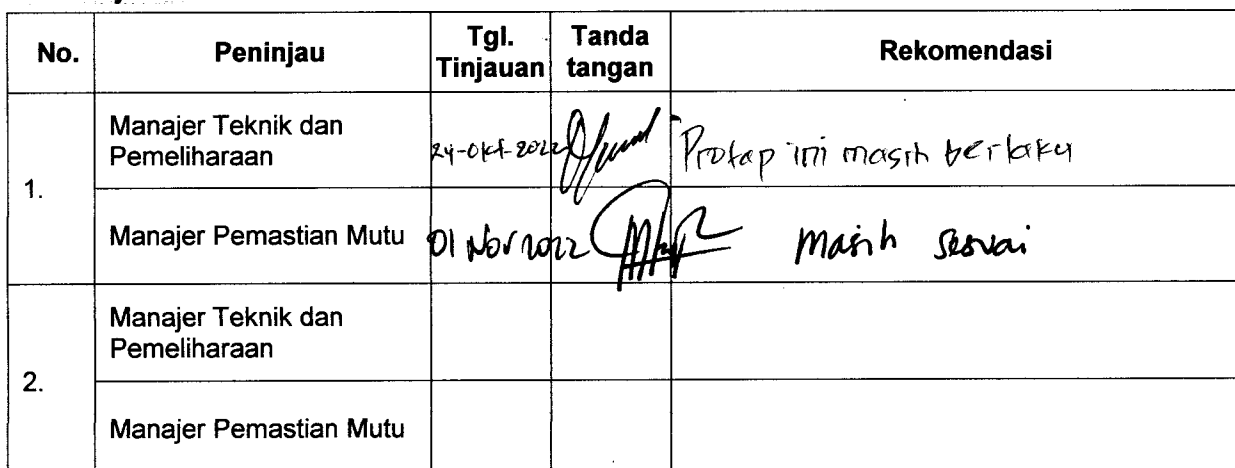 No. Peninjau Tgl. Tinjauan Tanda tangan Rekomendasi
1.
Manajer Teknik dan
Pemeliharaan
24-Okt-2022
Protap ini masih berlaku
Manajer Pemastian Mutu
01 Nov 2022
Masih sesuai
2.
Manajer Teknik dan
Pemeliharaan
Manajer Pemastian Mutu